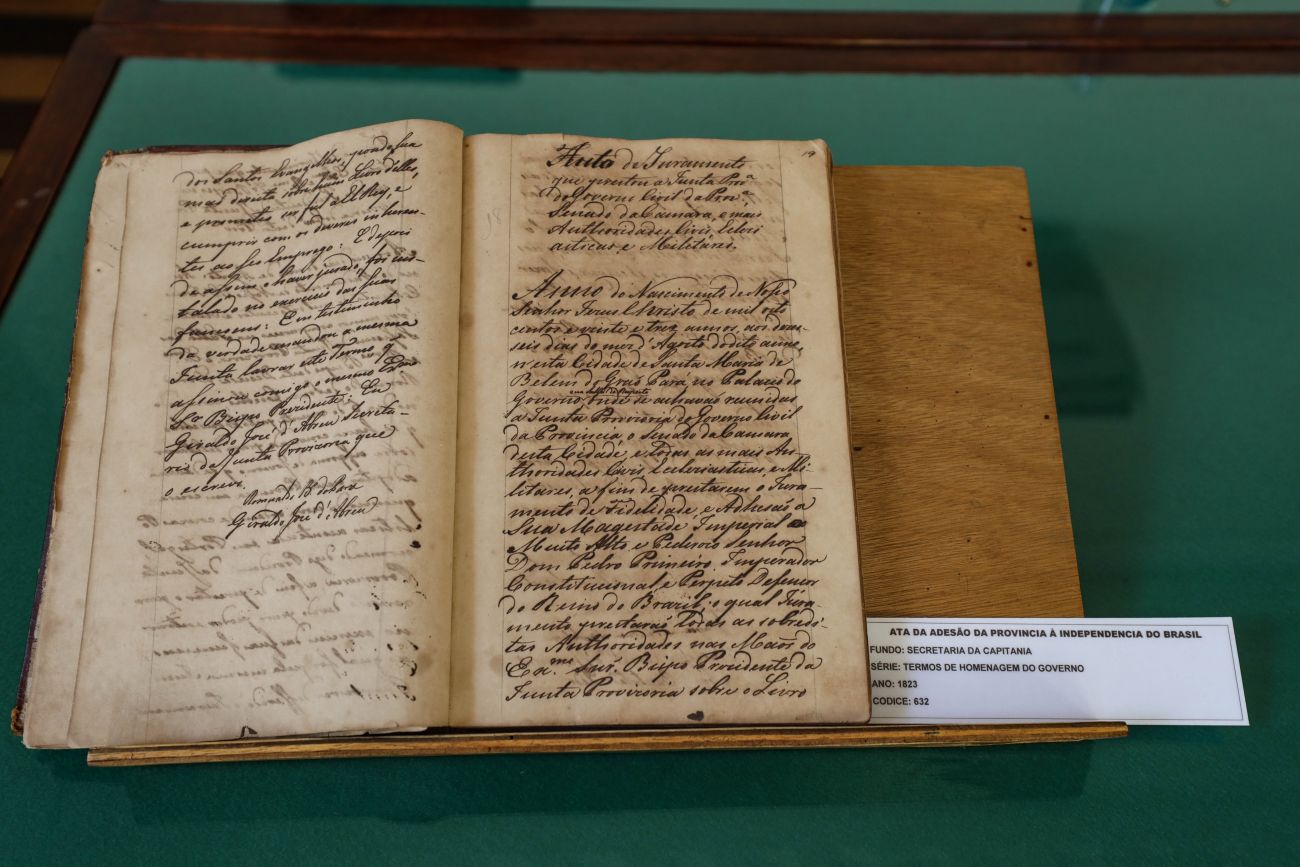 dos Santos Evangelhos, pondo sua
mao direita sobre hum Livro delles,
e prometeo ser fiel a El Rey, e
cumprir com os deveres inheren-
tes ao seo Emprego: E depois
de assim o haver jurado, foi ins-
talado no exercicio das suas
funsoens: E em testimunho
da verdade mandou a mesma
Junta lavrar este Termo q
assinou comigo o mesmo
Bispo Prezidente: Eu
Giraldo José d'Abreu Secreta-
rio da Junta Provizoria que
o escrevi.
Romualdo B. do Para
Giraldo José d'Abreu
19
Auto de Juramento
que prestou a Junta Prov.ª
do Governo Civil da Prov.ª
Senado da Camara, e mais
Authoridades Civis, Eclesi
asticas, e Militares.
Anno do Nascimento de Nosso
Senhor Jesus Christo de mil oito
centos e vinte e trez annos, aos deze-
seis dias do mez d'Agosto do dito anno,
n'esta Cidade de Santa Maria de
Belem do Grão Pará, no Palacio do
Governo, onde se achavão reunidas
a Junta Provizoria do Governo Civil
da Provincia, o Senado da Camara
desta Cidade, e todas as mais Au-
thoridades Civis, Eclesiasticas, e Mi-
litares, a fim de prestarem o Jura-
mento de Fidelidade, e Adhesão a
Sua Magestade Imperial o
Muito Alto e Poderozo Senhor
Dom Pedro Primeiro, Imperador
Constitucional, e Perpeto Defensor
do Reino do Brazil, o qual Jura-
mento prestarão todas as sobredi-
tas Authoridades nas Maõs do
Ex.mo Snr. Bispo Prezidente da
Junta Provizoria sobre o Livro
ATA DA ADESÃO DA PROVINCIA À INDEPENDENCIA DO BRASIL
FUNDO: SECRETARIA DA CAPITANIA
SÉRIE: TERMOS DE HOMENAGEM DO GOVERNO
ANO: 1823
CODICE: 632